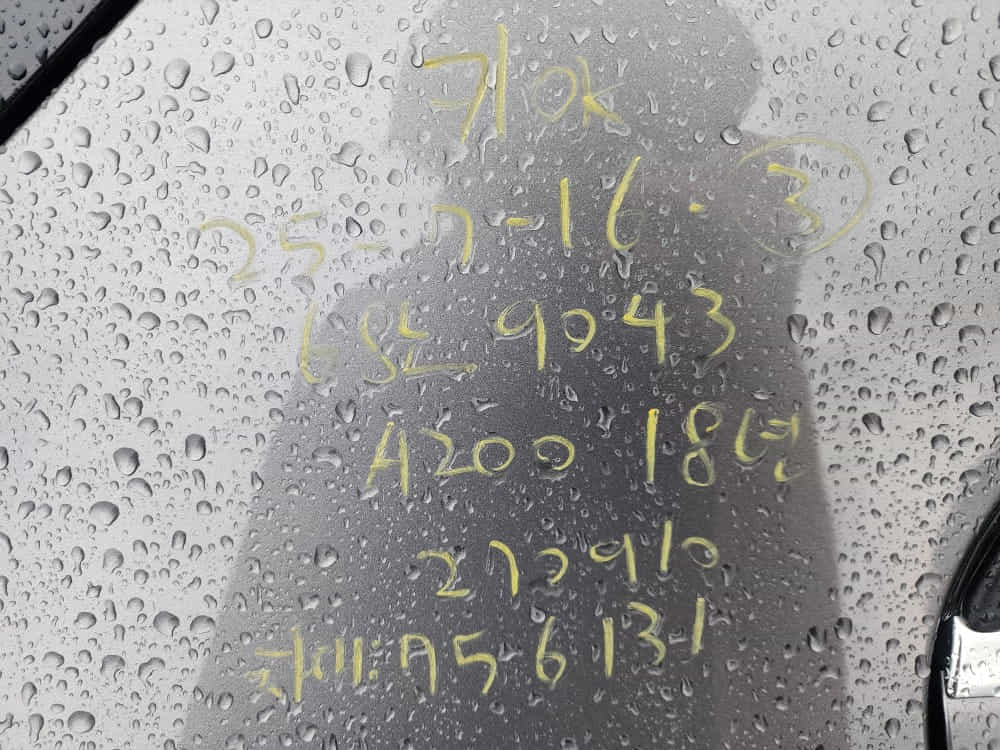 키 ok
25-7-16. ③
68노 9043
A200 18년
270910
차대: 756131